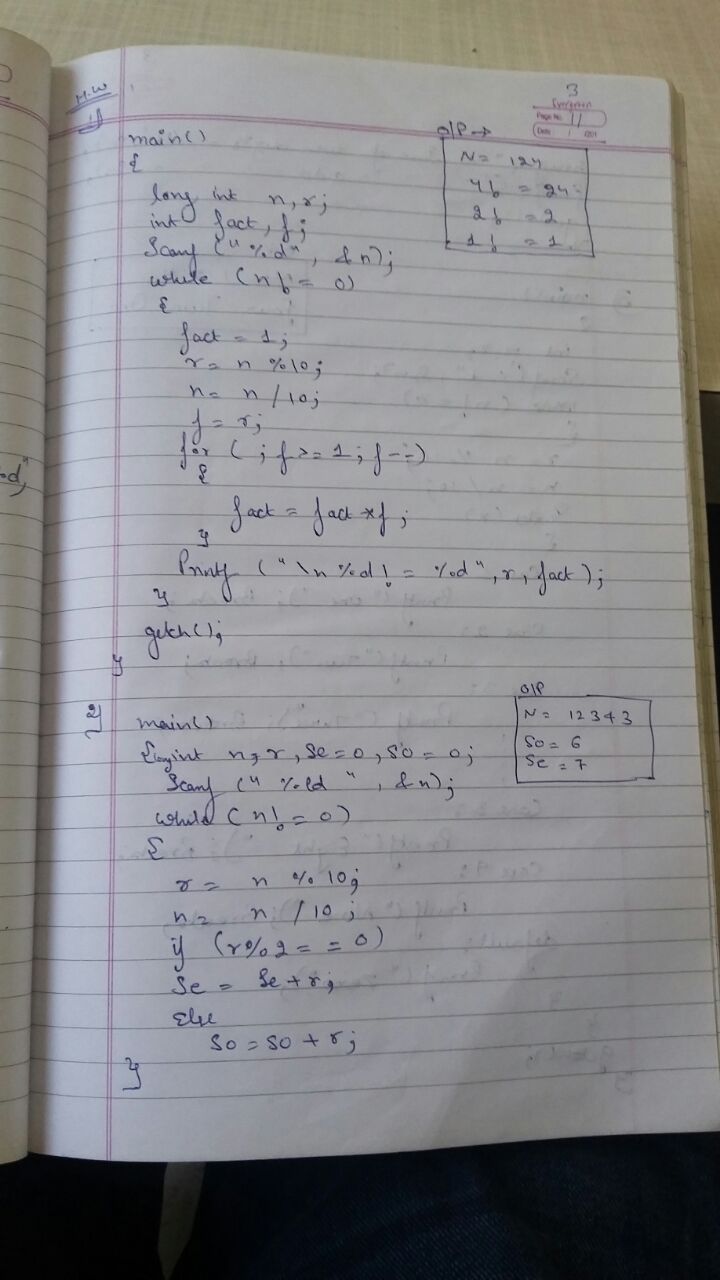 H.W
3
Evergreen
Page No. 11
Date / /201
1)
main()
{
long int n, r;
int fact, f;
Scanf ("%d", &n);
while (n != 0)
{
fact = 1;
r = n %10;
n = n /10;
f = r;
for ( ; f >= 1; f--)
{
fact = fact *f;
}
Printf ("\n %d! = %d", r, fact);
}
getch();
}
O/P →
N = 124
4! = 24
2! = 2
1! = 1
2)
main()
{ long int n, r, Se=0, So=0;
Scanf (" %ld ", &n);
while (n != 0)
{
r = n % 10;
n = n /10 ;
if (r%2 = = 0)
Se = Se + r;
Else
So = So + r;
}
O/P
N = 12343
So = 6
Se = 7
d"